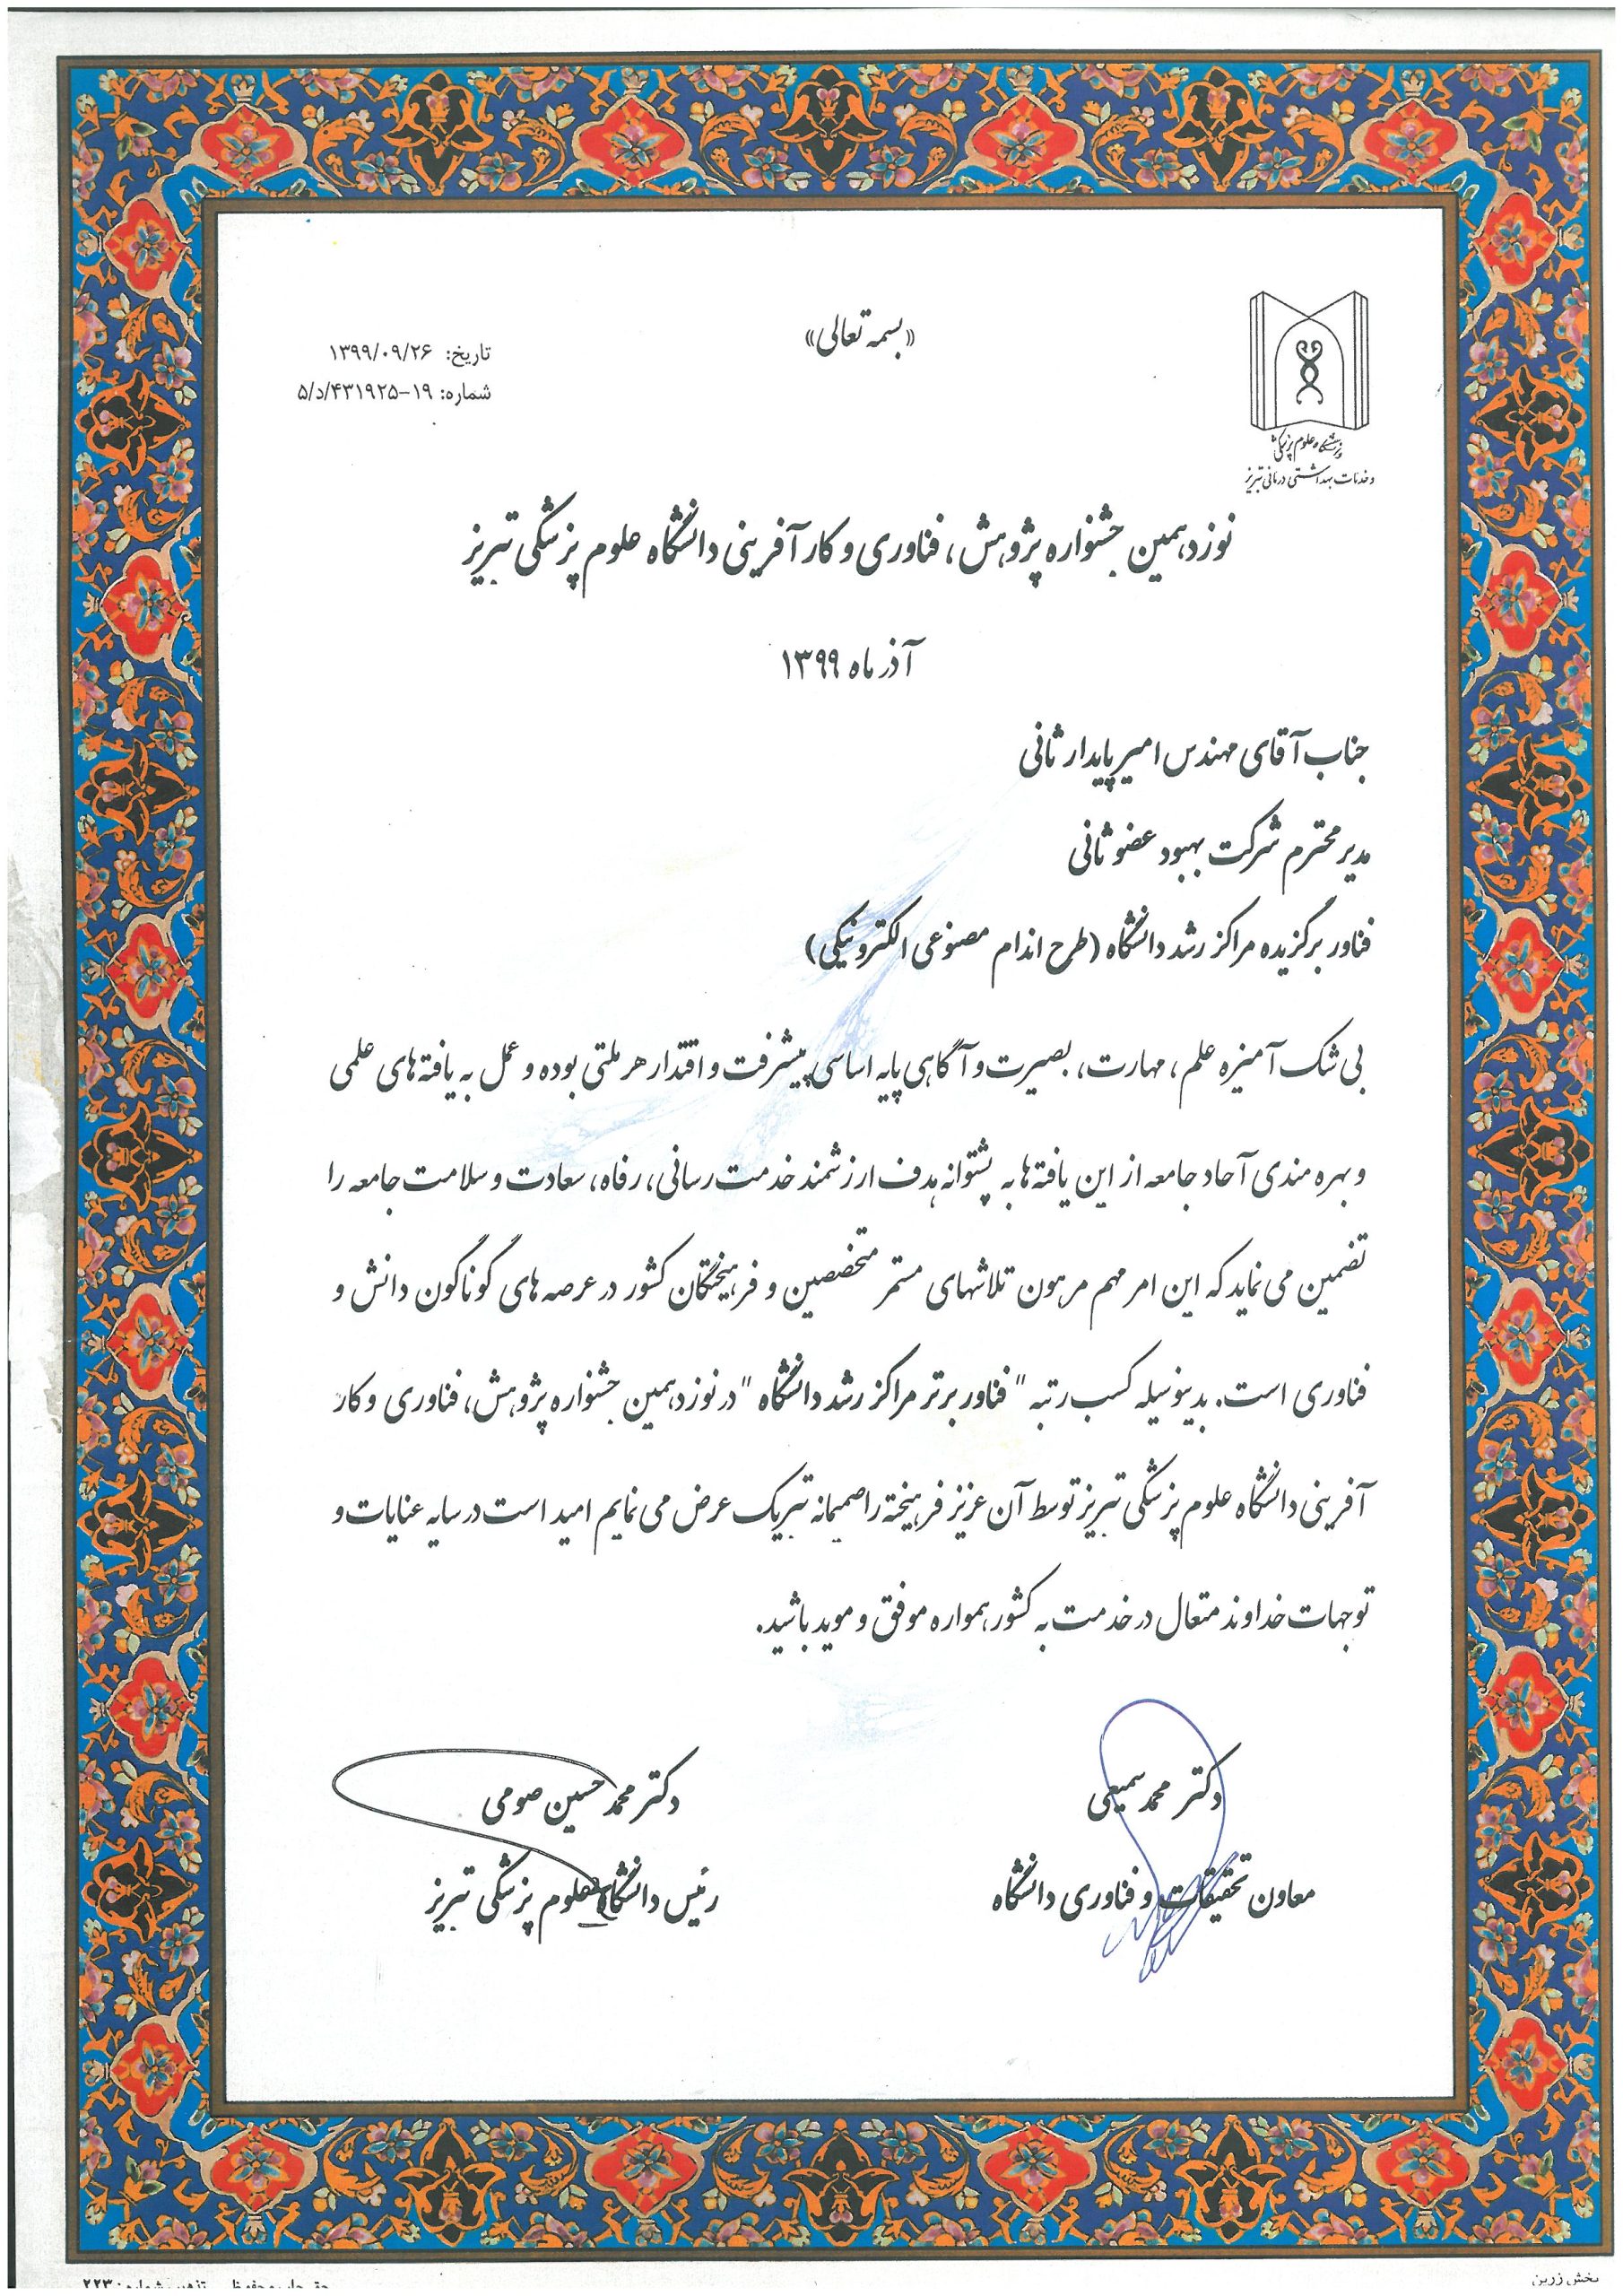 «بسمه تعالی»
تاریخ: ۱۳۹۹/۰۹/۲۶
شماره: ۱۹-۵/د/۴۳۱۹۲۵
دانشگاه علوم پزشکی
و خدمات بهداشتی درمانی تبریز
نوزدهمین جشنواره پژوهش، فناوری و کارآفرینی دانشگاه علوم پزشکی تبریز
آذر ماه ۱۳۹۹
جناب آقای مهندس امیر پایدار ثانی
مدیر محترم شرکت بهبود عضو ثانی
فناور برگزیده مراکز رشد دانشگاه (طرح اندام مصنوعی الکترونیکی)
بی شک آمیزه علم، مهارت، بصیرت و آگاهی پایه اساسی پیشرفت و اقتدار هر ملتی بوده و عمل به یافته های علمی
و بهره مندی آحاد جامعه از این یافته ها به پشتوانه هدف ارزشمند خدمت رسانی، رفاه، سعادت و سلامت جامعه را
تضمین می نماید که این امر مهم مرهون تلاشهای مستمر متخصصین و فرهیختگان کشور در عرصه های گوناگون دانش و
فناوری است. بدینوسیله کسب رتبه " فناور برتر مراکز رشد دانشگاه " در نوزدهمین جشنواره پژوهش، فناوری و کار
آفرینی دانشگاه علوم پزشکی تبریز توسط آن عزیز فرهیخته را صمیمانه تبریک عرض می نمایم امید است در سایه عنایات و
توجهات خداوند متعال در خدمت به کشور همواره موفق و موید باشید.
دکتر محمد سمیعی
معاون تحقیقات و فناوری دانشگاه
دکتر محمد حسین صومی
رئیس دانشگاه علوم پزشکی تبریز
پخش زرین